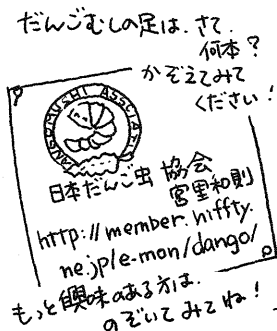 だんごむしの足は、さて
何本？
かぞえてみて
ください！
DANGOMUSHI ASSCIAT
日本だんご虫 協会
宮里和則
http://member.niffty.
ne.jp/e-mon/dango/
もっと興味のある方は、
のぞいてみてね！